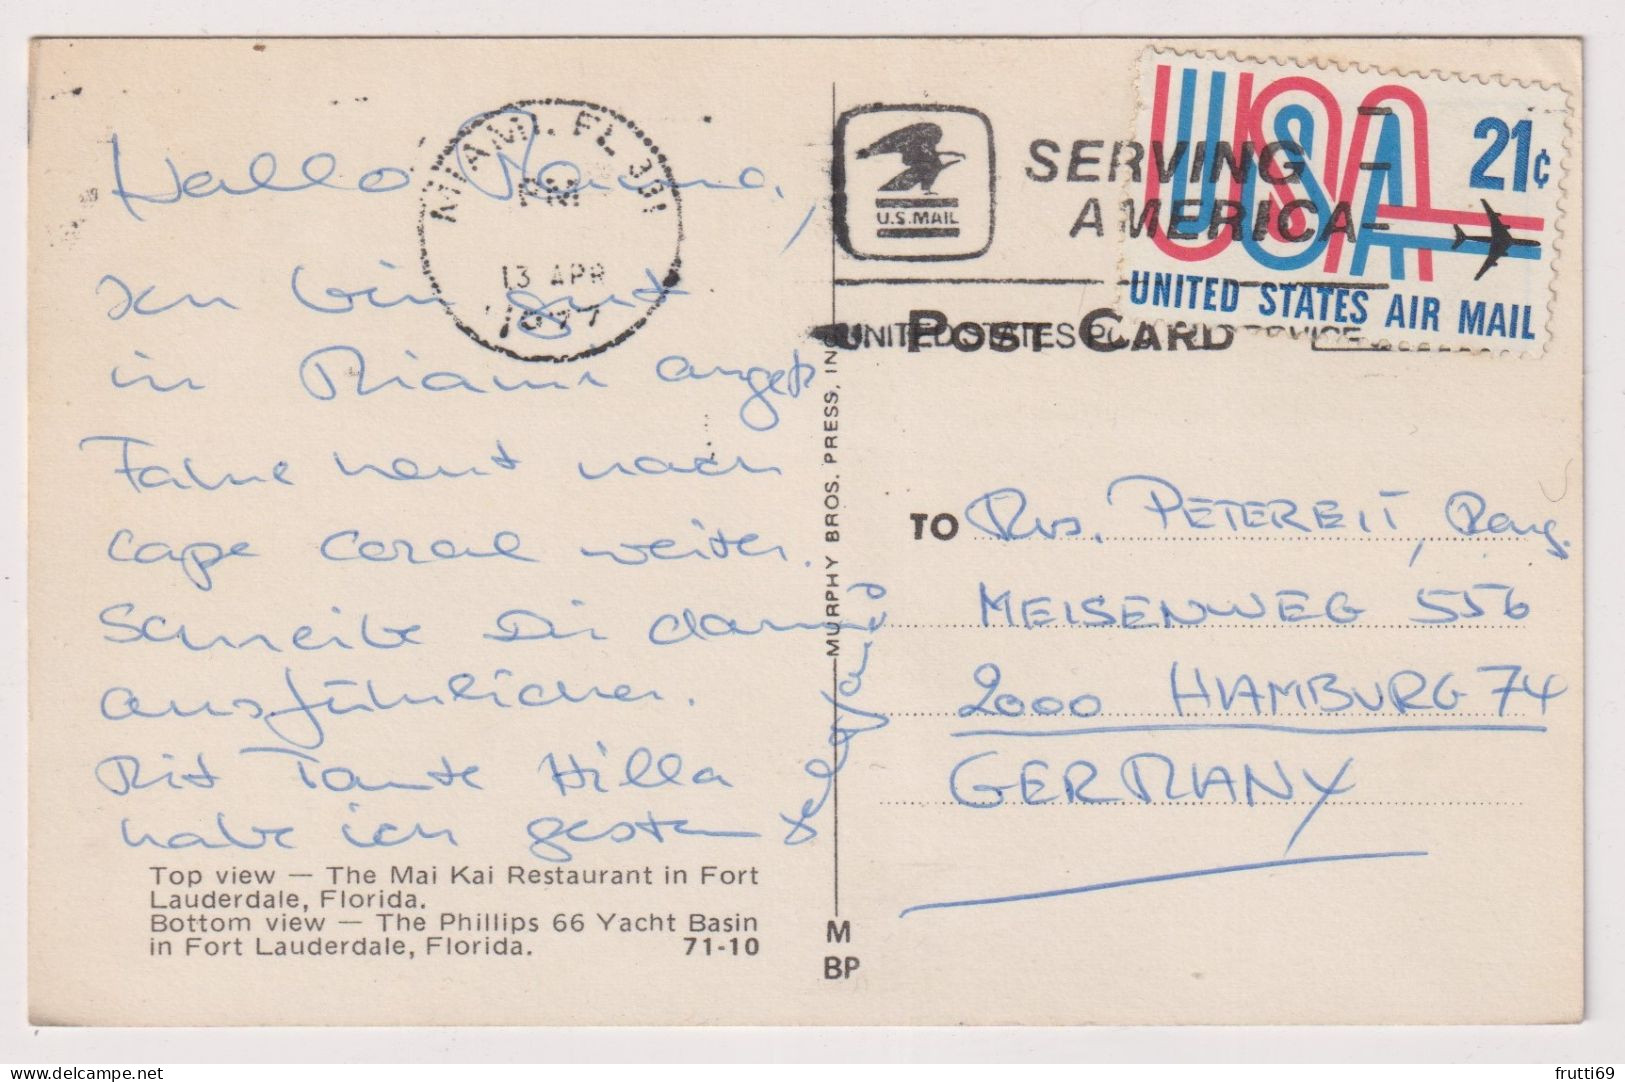 Hallo Mama,
Ich bin gut
in Miami angek.
Fahre heut nach
Cape Coral weiter.
Schreibe Dir dann
ausführlicher.
Mit Tante Hilla
habe ich gestern
MIAMI, FL 331
PM
13 APR
1977
U.S.MAIL
SERVING
AMERICA
UNITED STATES POSTAL SERVICE
USA
21¢
UNITED STATES AIR MAIL
POST CARD
MURPHY BROS. PRESS, INC.
TO Mrs. PETEREIT,
MEISENWEG 55b
2000 HAMBURG 74
GERMANY
Top view — The Mai Kai Restaurant in Fort
Lauderdale, Florida.
Bottom view — The Phillips 66 Yacht Basin
in Fort Lauderdale, Florida. 71-10
M
BP
frutti69